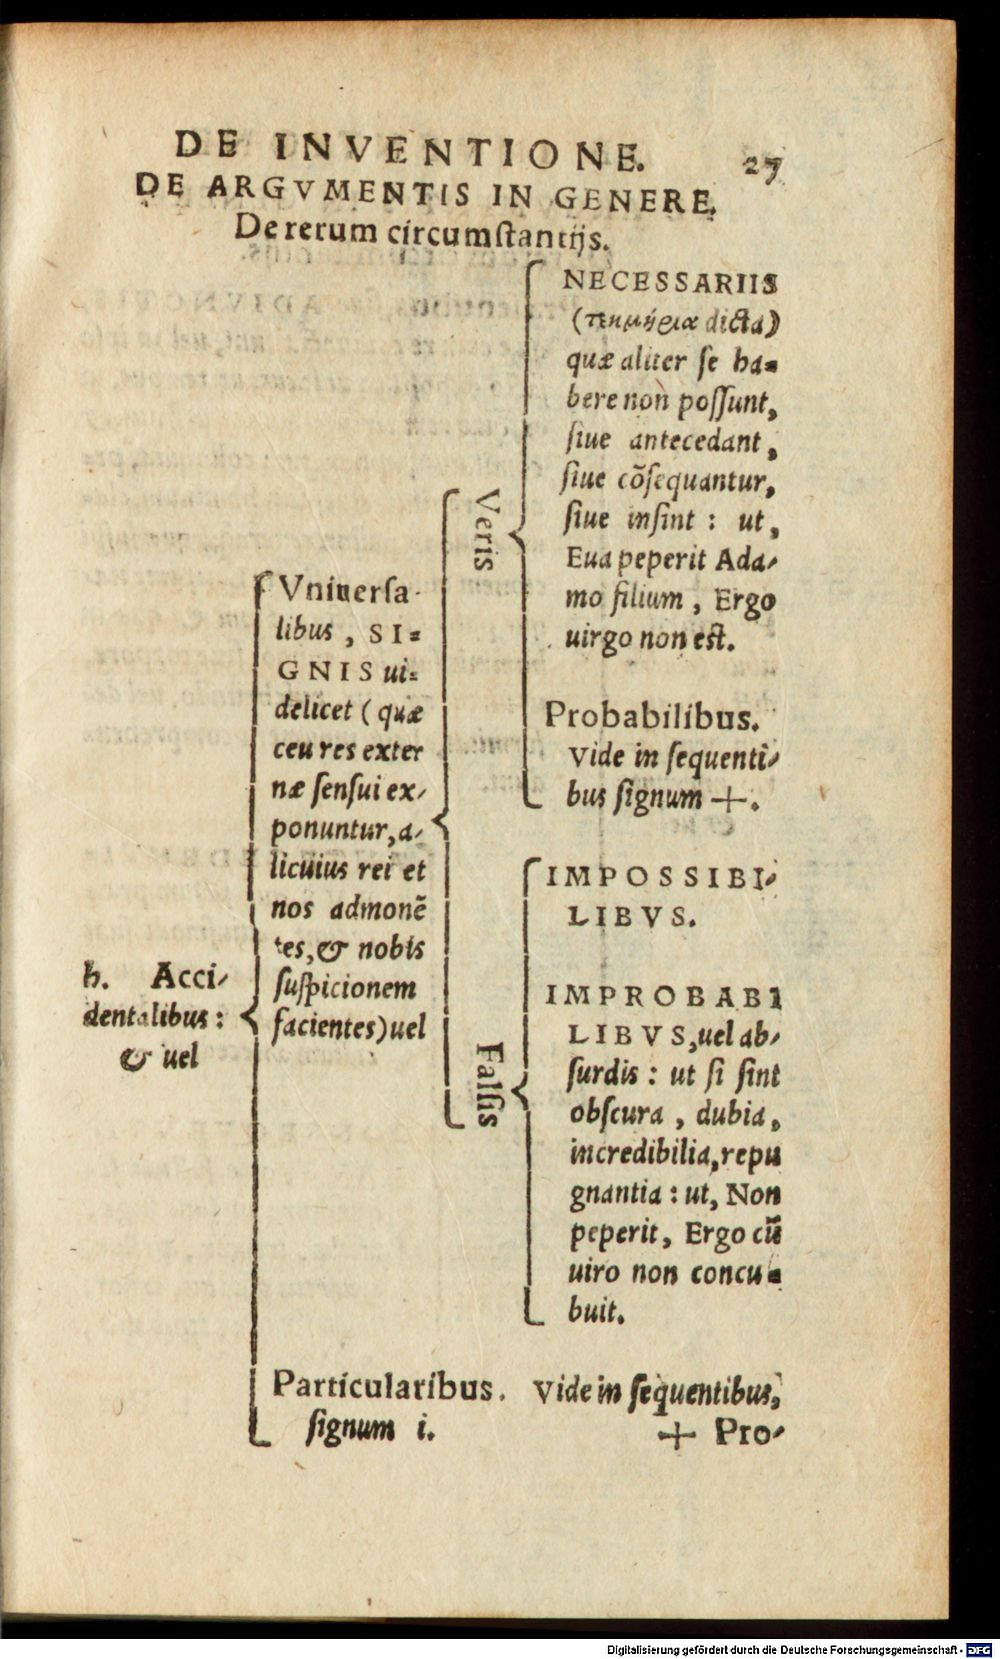 DE INVENTIONE. 27
DE ARGVMENTIS IN GENERE.
De rerum circumſtantijs.
h. Acci⸗
dentalibus:
& uel
Vniuerſa
libus, SI⸗
GNIS ui⸗
delicet (quæ
ceu res exter
næ ſenſui ex⸗
ponuntur, a⸗
licuius rei et
nos admonẽ
tes, & nobis
ſuſpicionem
facientes) uel
Veris
NECESSARIIS
(τεκμήρια dicta)
quæ aliter ſe ha⸗
bere non poſſunt,
ſiue antecedant,
ſiue cõſequantur,
ſiue inſint: ut,
Eua peperit Ada⸗
mo filium, Ergo
uirgo non eſt.
Probabilibus.
Vide in ſequenti⸗
bus ſignum +.
Falſis
IMPOSSIBI⸗
LIBVS.
IMPROBABI
LIBVS, uel ab⸗
ſurdis: ut ſi ſint
obſcura, dubia,
incredibilia, repu
gnantia: ut, Non
peperit, Ergo cũ
uiro non concu⸗
buit.
Particularibus. Vide in ſequentibus,
ſignum i.
+ Pro⸗
Digitalisierung gefördert durch die Deutsche Forschungsgemeinschaft - DFG